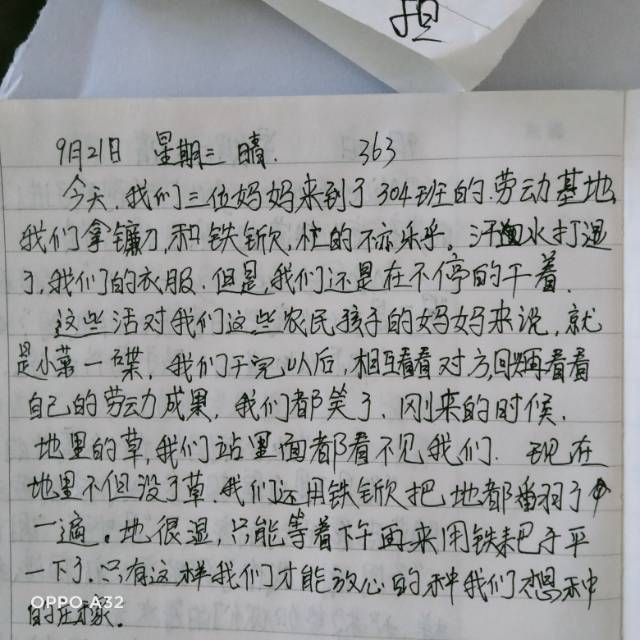 担
9月21日 星期三 晴. 363
今天,我们三位妈妈来到了304班的劳动基地,
我们拿镰刀,和铁锨,忙的不亦乐乎。汗水打湿
了,我们的衣服.但是,我们还是在不停的干着.
这些活对我们这些农民孩子的妈妈来说,就
是小菜一碟,我们干完以后,相互看看对方,回头再看看
自己的劳动成果,我们都笑了.刚来的时候.
地里的草,我们站里面都看不见我们.现在
地里不但没了草.我们还用铁锨把地都翻了
一遍。地很湿,只能等着下午再来用铁耙子平
一下了.只有这样我们才能放心的种我们想种
的庄稼.
OPPO A32